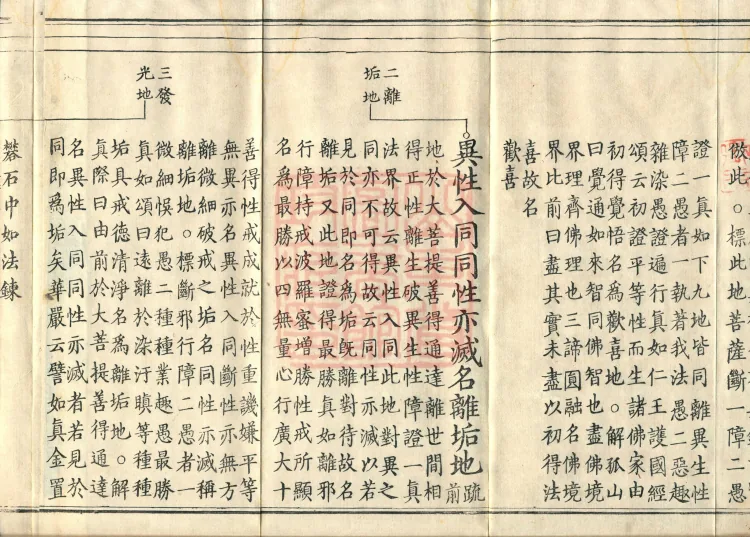 倣此。標此地菩薩斷一障二愚
證一真如下九地皆同離異生性
障二愚者一執着我法愚二惡趣
雜染愚證遍行真如仁王護國經
頌云初證平等性而生諸佛家由
初得覺悟名爲歡喜地。解孤山
曰覺通如來智同佛智也盡佛境
界理齊佛理也三諦圓融名佛境
界比前曰盡其實未盡以初得法
喜故名
歡喜
二離
垢地
異性入同同性亦滅名離垢地疏前
地於大菩提善得通達離世間相
得正性離生破異生性障證一真
法界故云異性入同此地對異之
同亦不可得故云同性亦滅以若
見於同即名爲垢旣離對待故名
離垢又此地證得最勝真如離邪
行障持戒波羅蜜增勝性戒所顯
名爲最勝以四無量心行廣大十
三發
光地
善得性戒成就於性重譏嫌平等
無異亦名異性入同斷性亦無方
離微細破戒之垢名同性亦滅稱
離垢地。標斷邪行障二愚者一
微細悞犯愚二種種業趣愚最勝
真如頌曰遠離於染汙瞋等種種
垢具戒德清淨名爲離垢地。解
真際曰由前於大菩提善得通達
名異性入同同性亦滅者若見於
同即爲垢矣華嚴云譬如真金置
礬石中如法鍊